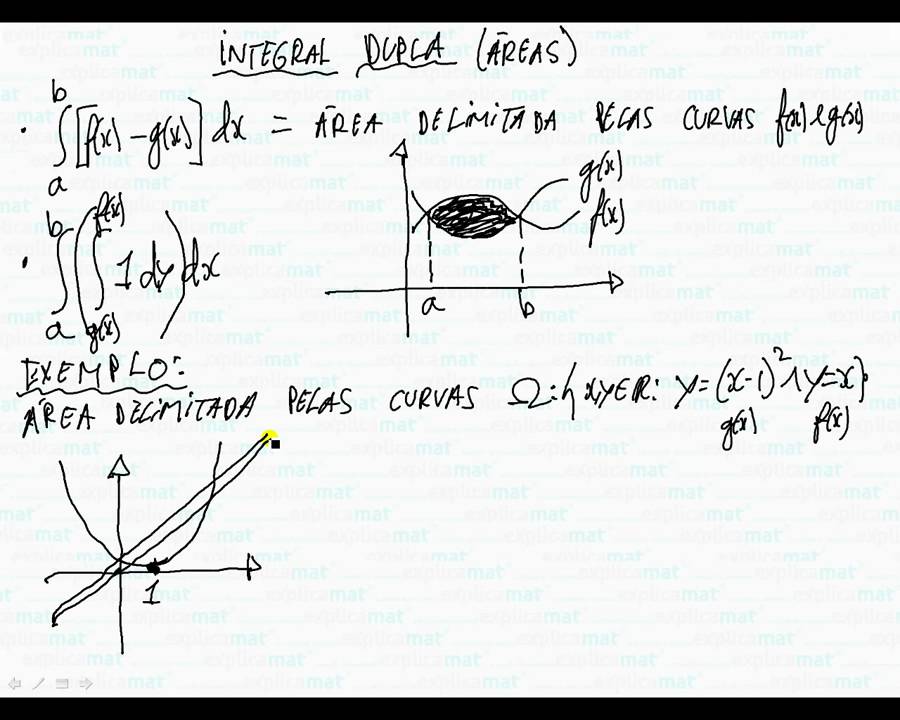 INTEGRAL DUPLA (ÁREAS)
• ∫ₐᵇ [f(x) - g(x)] dx = ÁREA DELIMITADA PELAS CURVAS f(x) e g(x)
g(x)
f(x)
a b
• ∫ₐᵇ (∫ 1 dy) dx
f(x)
g(x)
EXEMPLO:
ÁREA DELIMITADA PELAS CURVAS Ω: { x,y ∈ R: y = (x-1)² ∧ y = x }
g(x) f(x)
1